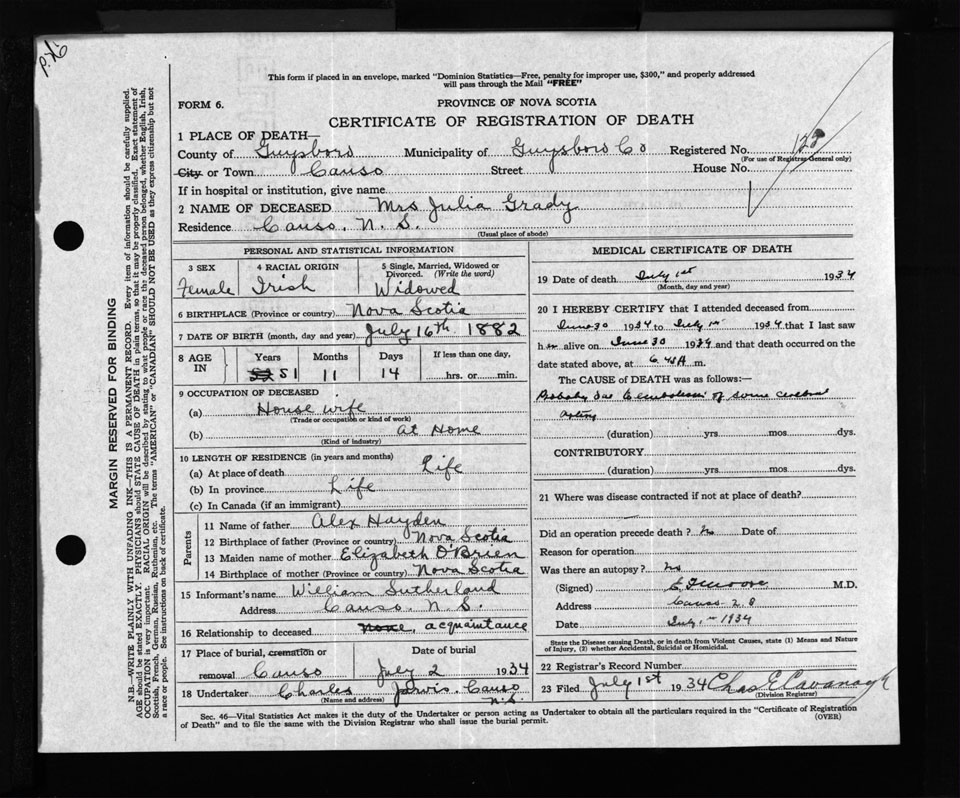 P.26
This form if placed in an envelope, marked "Dominion Statistics—Free, penalty for improper use, $300," and properly addressed
will pass through the Mail "FREE"
FORM 6.
PROVINCE OF NOVA SCOTIA
CERTIFICATE OF REGISTRATION OF DEATH
1 PLACE OF DEATH—
County of Guysboro Municipality of Guysboro Co Registered No. 123
(For use of Registrar-General only)
City or Town Canso Street House No.
If in hospital or institution, give name
2 NAME OF DECEASED Mrs Julia Grady
Residence Canso. N. S.
(Usual place of abode)
PERSONAL AND STATISTICAL INFORMATION
3 SEX 4 RACIAL ORIGIN 5 Single, Married, Widowed or Divorced. (Write the word)
Female Irish Widowed
6 BIRTHPLACE (Province or country) Nova Scotia
7 DATE OF BIRTH (month, day and year) July 16th 1882
8 AGE IN Years Months Days If less than one day,
52 51 11 14 hrs. or min.
9 OCCUPATION OF DECEASED
(a) House wife
(Trade or occupation or kind of work)
(b) at Home
(Kind of industry)
10 LENGTH OF RESIDENCE (in years and months)
(a) At place of death Life
(b) In province Life
(c) In Canada (if an immigrant)
Parents
11 Name of father Alex Hayden
12 Birthplace of father (Province or country) Nova Scotia
13 Maiden name of mother Elizabeth O'Brien
14 Birthplace of mother (Province or country) Nova Scotia
15 Informant's name William Sutherland
Address Canso. N. S.
16 Relationship to deceased none, acquaintance
17 Place of burial, cremation or Date of burial
removal Canso July 2 1934
18 Undertaker Charles Jarvis. Canso
(Name and address) N.S.
MEDICAL CERTIFICATE OF DEATH
19 Date of death July 1st 1934
(Month, day and year)
20 I HEREBY CERTIFY that I attended deceased from
June 30 1934 to July 1st 1934 that I last saw
h er alive on June 30 1934 and that death occurred on the
date stated above, at 6.45 A. m.
The CAUSE OF DEATH was as follows:—
Probably due to embolism of some cerebral
artery
(duration) yrs. mos. dys.
CONTRIBUTORY
(duration) yrs. mos. dys.
21 Where was disease contracted if not at place of death?
Did an operation precede death? No Date of
Reason for operation
Was there an autopsy? No
(Signed) M.D.
Address Canso N.S
Date July 1st 1934
State the Disease causing Death, or in death from Violent Causes, state (1) Means and Nature
of Injury, (2) whether Accidental, Suicidal or Homicidal.
22 Registrar's Record Number
23 Filed July 1st 1934 Chas E Cavanagh
(Division Registrar)
Sec. 46—Vital Statistics Act makes it the duty of the Undertaker or person acting as Undertaker to obtain all the particulars required in the "Certificate of Registration
of Death" and to file the same with the Division Registrar who shall issue the burial permit. (OVER)
MARGIN RESERVED FOR BINDING
N.B.—WRITE PLAINLY WITH UNFADING INK—THIS IS A PERMANENT RECORD. Every item of information should be carefully supplied.
AGE should be stated EXACTLY. PHYSICIANS should STATE CAUSE OF DEATH in plain terms, so that it may be properly classified. Exact statement of
OCCUPATION is very important. RACIAL ORIGIN will be described by stating to what people or race the deceased person belonged, whether English, Irish,
Scottish, French, German, Russian, Ruthenian, etc. The terms "AMERICAN" or "CANADIAN" SHOULD NOT BE USED as they express citizenship but not
a race or people. See instructions on back of certificate.